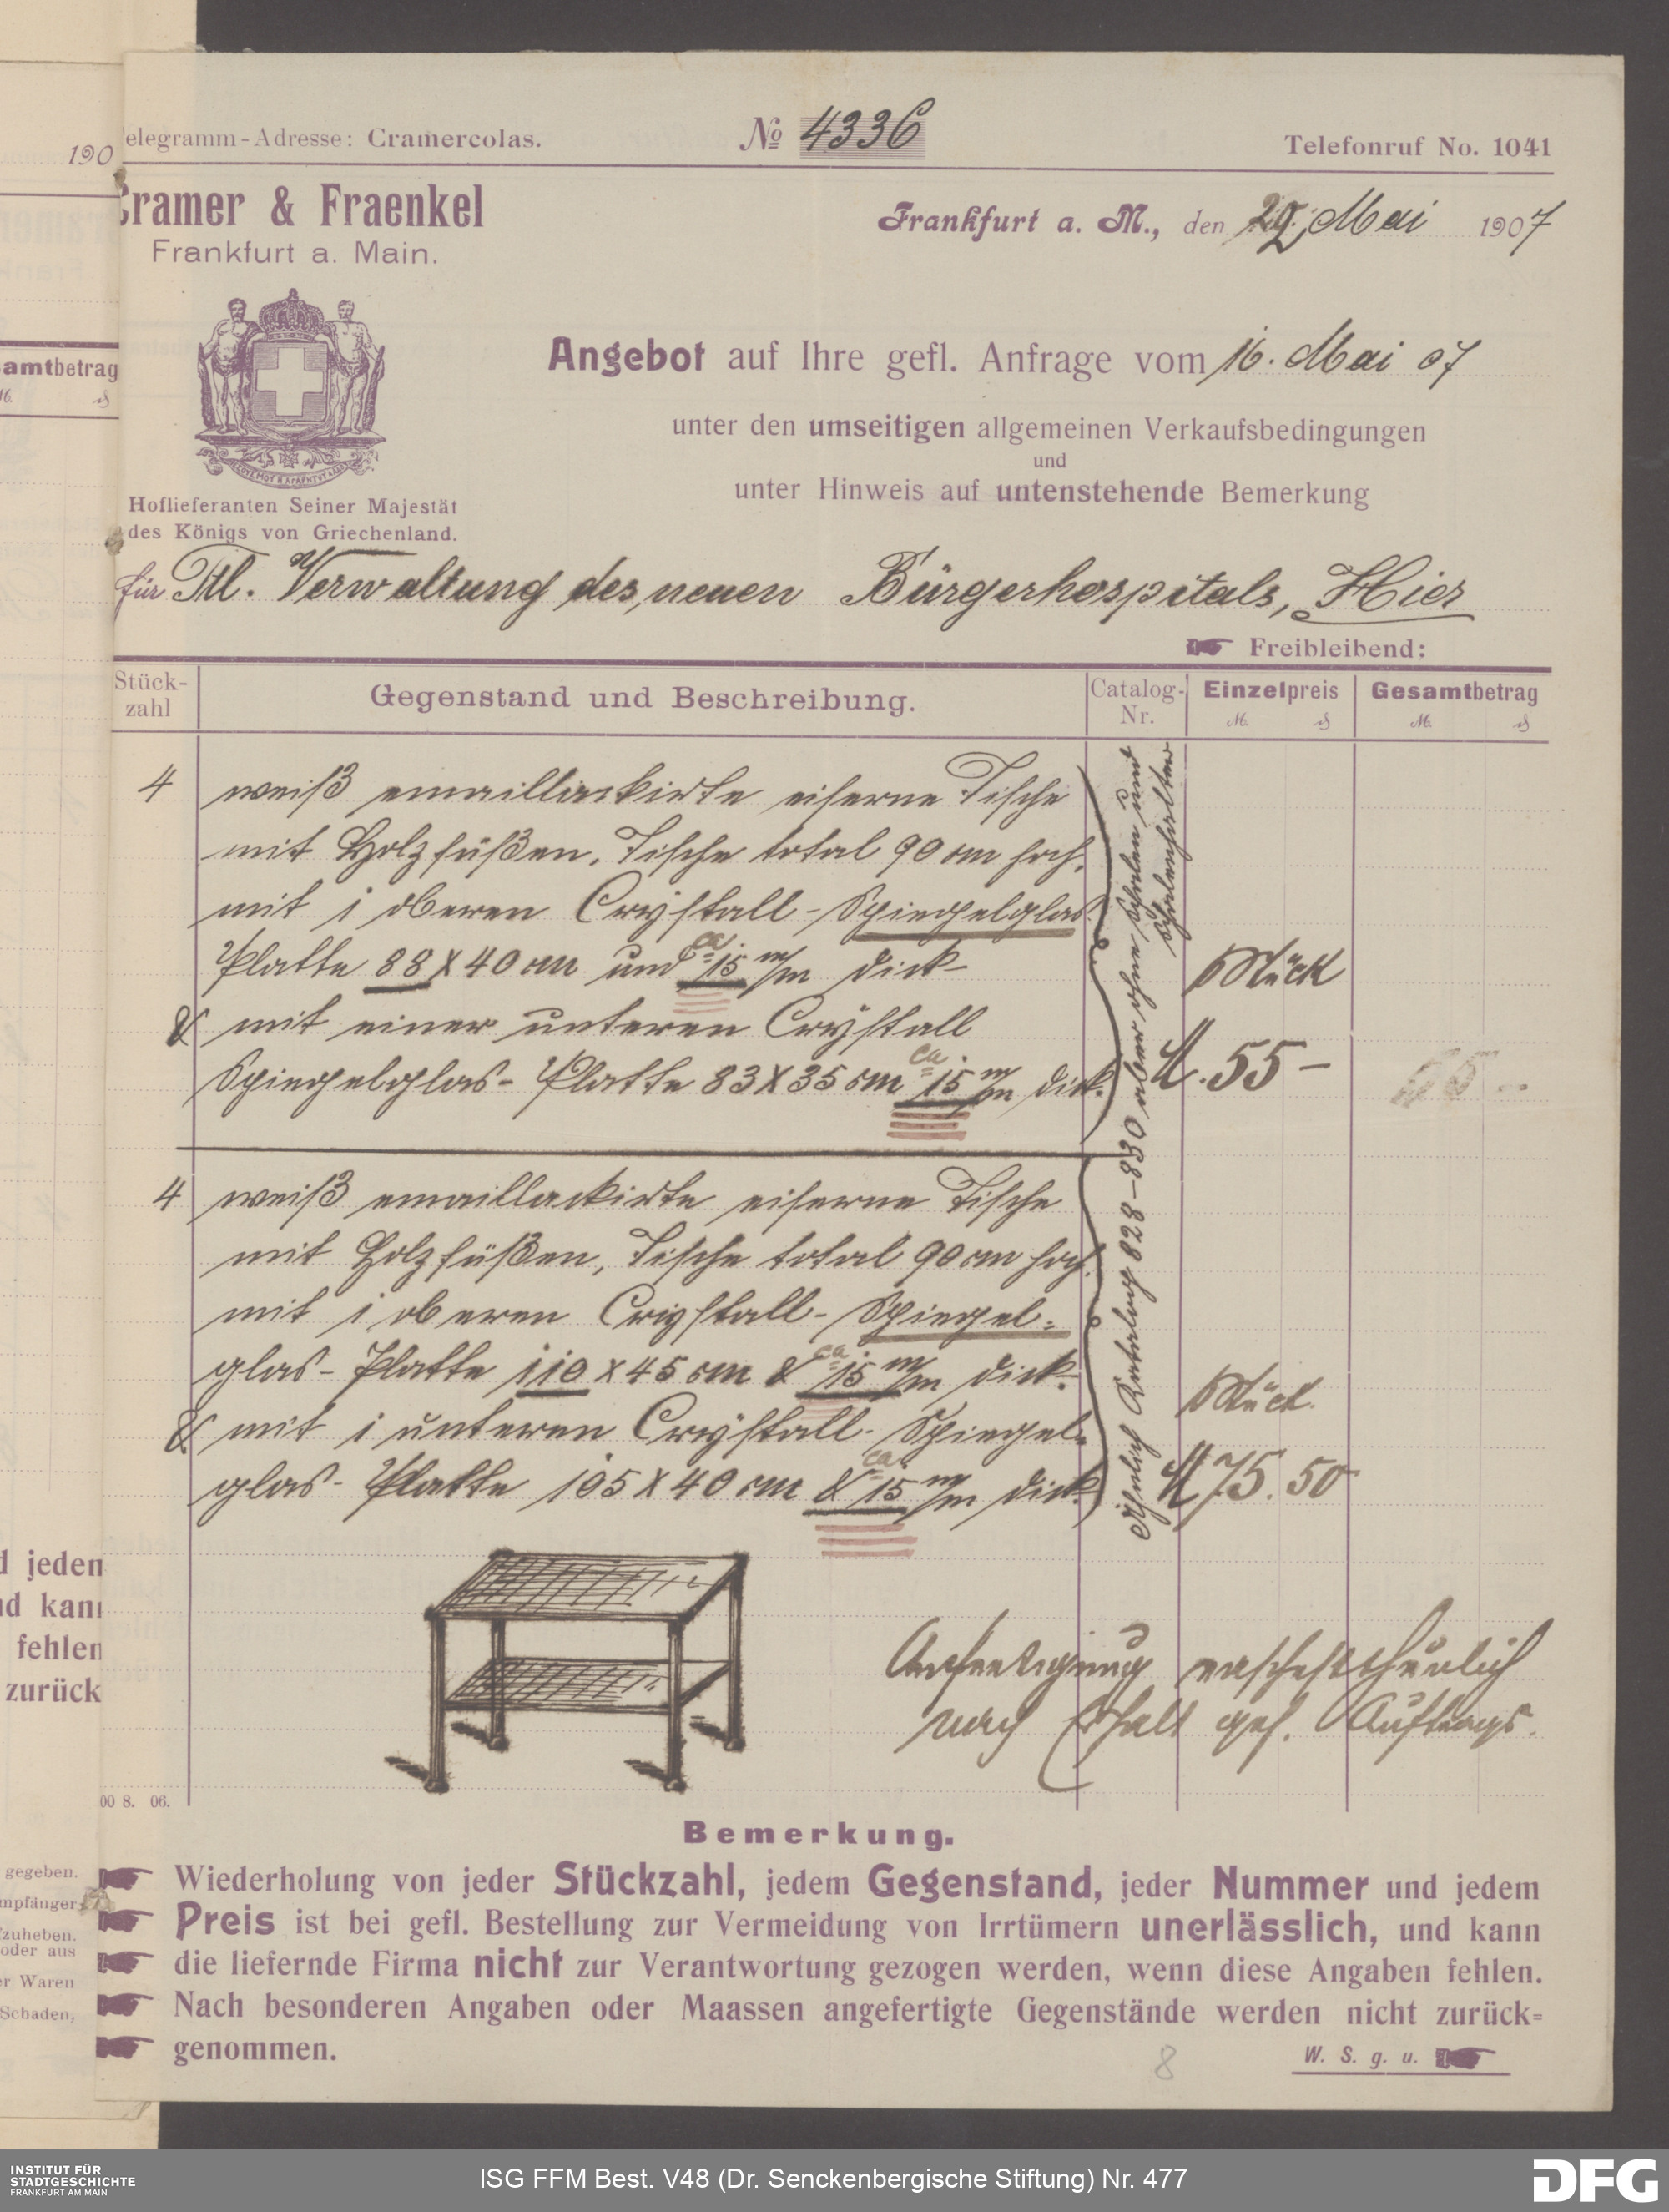 190
amtbetrag
M. ₰
d jeden
nd kann
fehlen
zurück
gegeben.
mpfänger
fzuheben.
oder aus
er Waren
Schaden,
elegramm-Adresse: Cramercolas.
No 4336
Telefonruf No. 1041
Cramer & Fraenkel
Frankfurt a. Main.
Frankfurt a. M., den 29. Mai 1907
Hoflieferanten Seiner Majestät
des Königs von Griechenland.
Angebot auf Ihre gefl. Anfrage vom 16. Mai 07
unter den umseitigen allgemeinen Verkaufsbedingungen
und
unter Hinweis auf untenstehende Bemerkung
für Ttl. Verwaltung des neuen Bürgerhospitals, Hier
Freibleibend:
Stück-
zahl
Gegenstand und Beschreibung.
Catalog-
Nr.
Einzelpreis
M. ₰
Gesamtbetrag
M. ₰
4 weiß emaillackirte eiserne Tische
mit Holzfüßen, Tische total 90 cm hoch,
mit 1 oberen Crystall-Spiegelglas-
Platte 88 X 40 cm und ca 15 m/m dick
& mit einer unteren Crystall
Spiegelglas-Platte 83 X 35 cm ca 15 m/m dick.
Stück
M. 55 –
55 –
4 weiß emaillackirte eiserne Tische
mit Holzfüßen, Tische total 90 cm hoch
mit 1 oberen Crystall-Spiegel-
glas-Platte 110 X 45 cm & ca 15 m/m dick.
& mit 1 unteren Crystall-Spiegel-
glas-Platte 105 X 40 cm & ca 15 m/m dick.
Stück.
M 75.50
Ähnlich Katalog 828–830 aber ohne Schalen und
Schalenhalter
Anfertigung raschestthunlich
nach Erhalt gef. Auftrags.
00 8. 06.
Bemerkung.
Wiederholung von jeder Stückzahl, jedem Gegenstand, jeder Nummer und jedem
Preis ist bei gefl. Bestellung zur Vermeidung von Irrtümern unerlässlich, und kann
die liefernde Firma nicht zur Verantwortung gezogen werden, wenn diese Angaben fehlen.
Nach besonderen Angaben oder Maassen angefertigte Gegenstände werden nicht zurück-
genommen.
8
W. S. g. u.
INSTITUT FÜR
STADTGESCHICHTE
FRANKFURT AM MAIN
ISG FFM Best. V48 (Dr. Senckenbergische Stiftung) Nr. 477
DFG